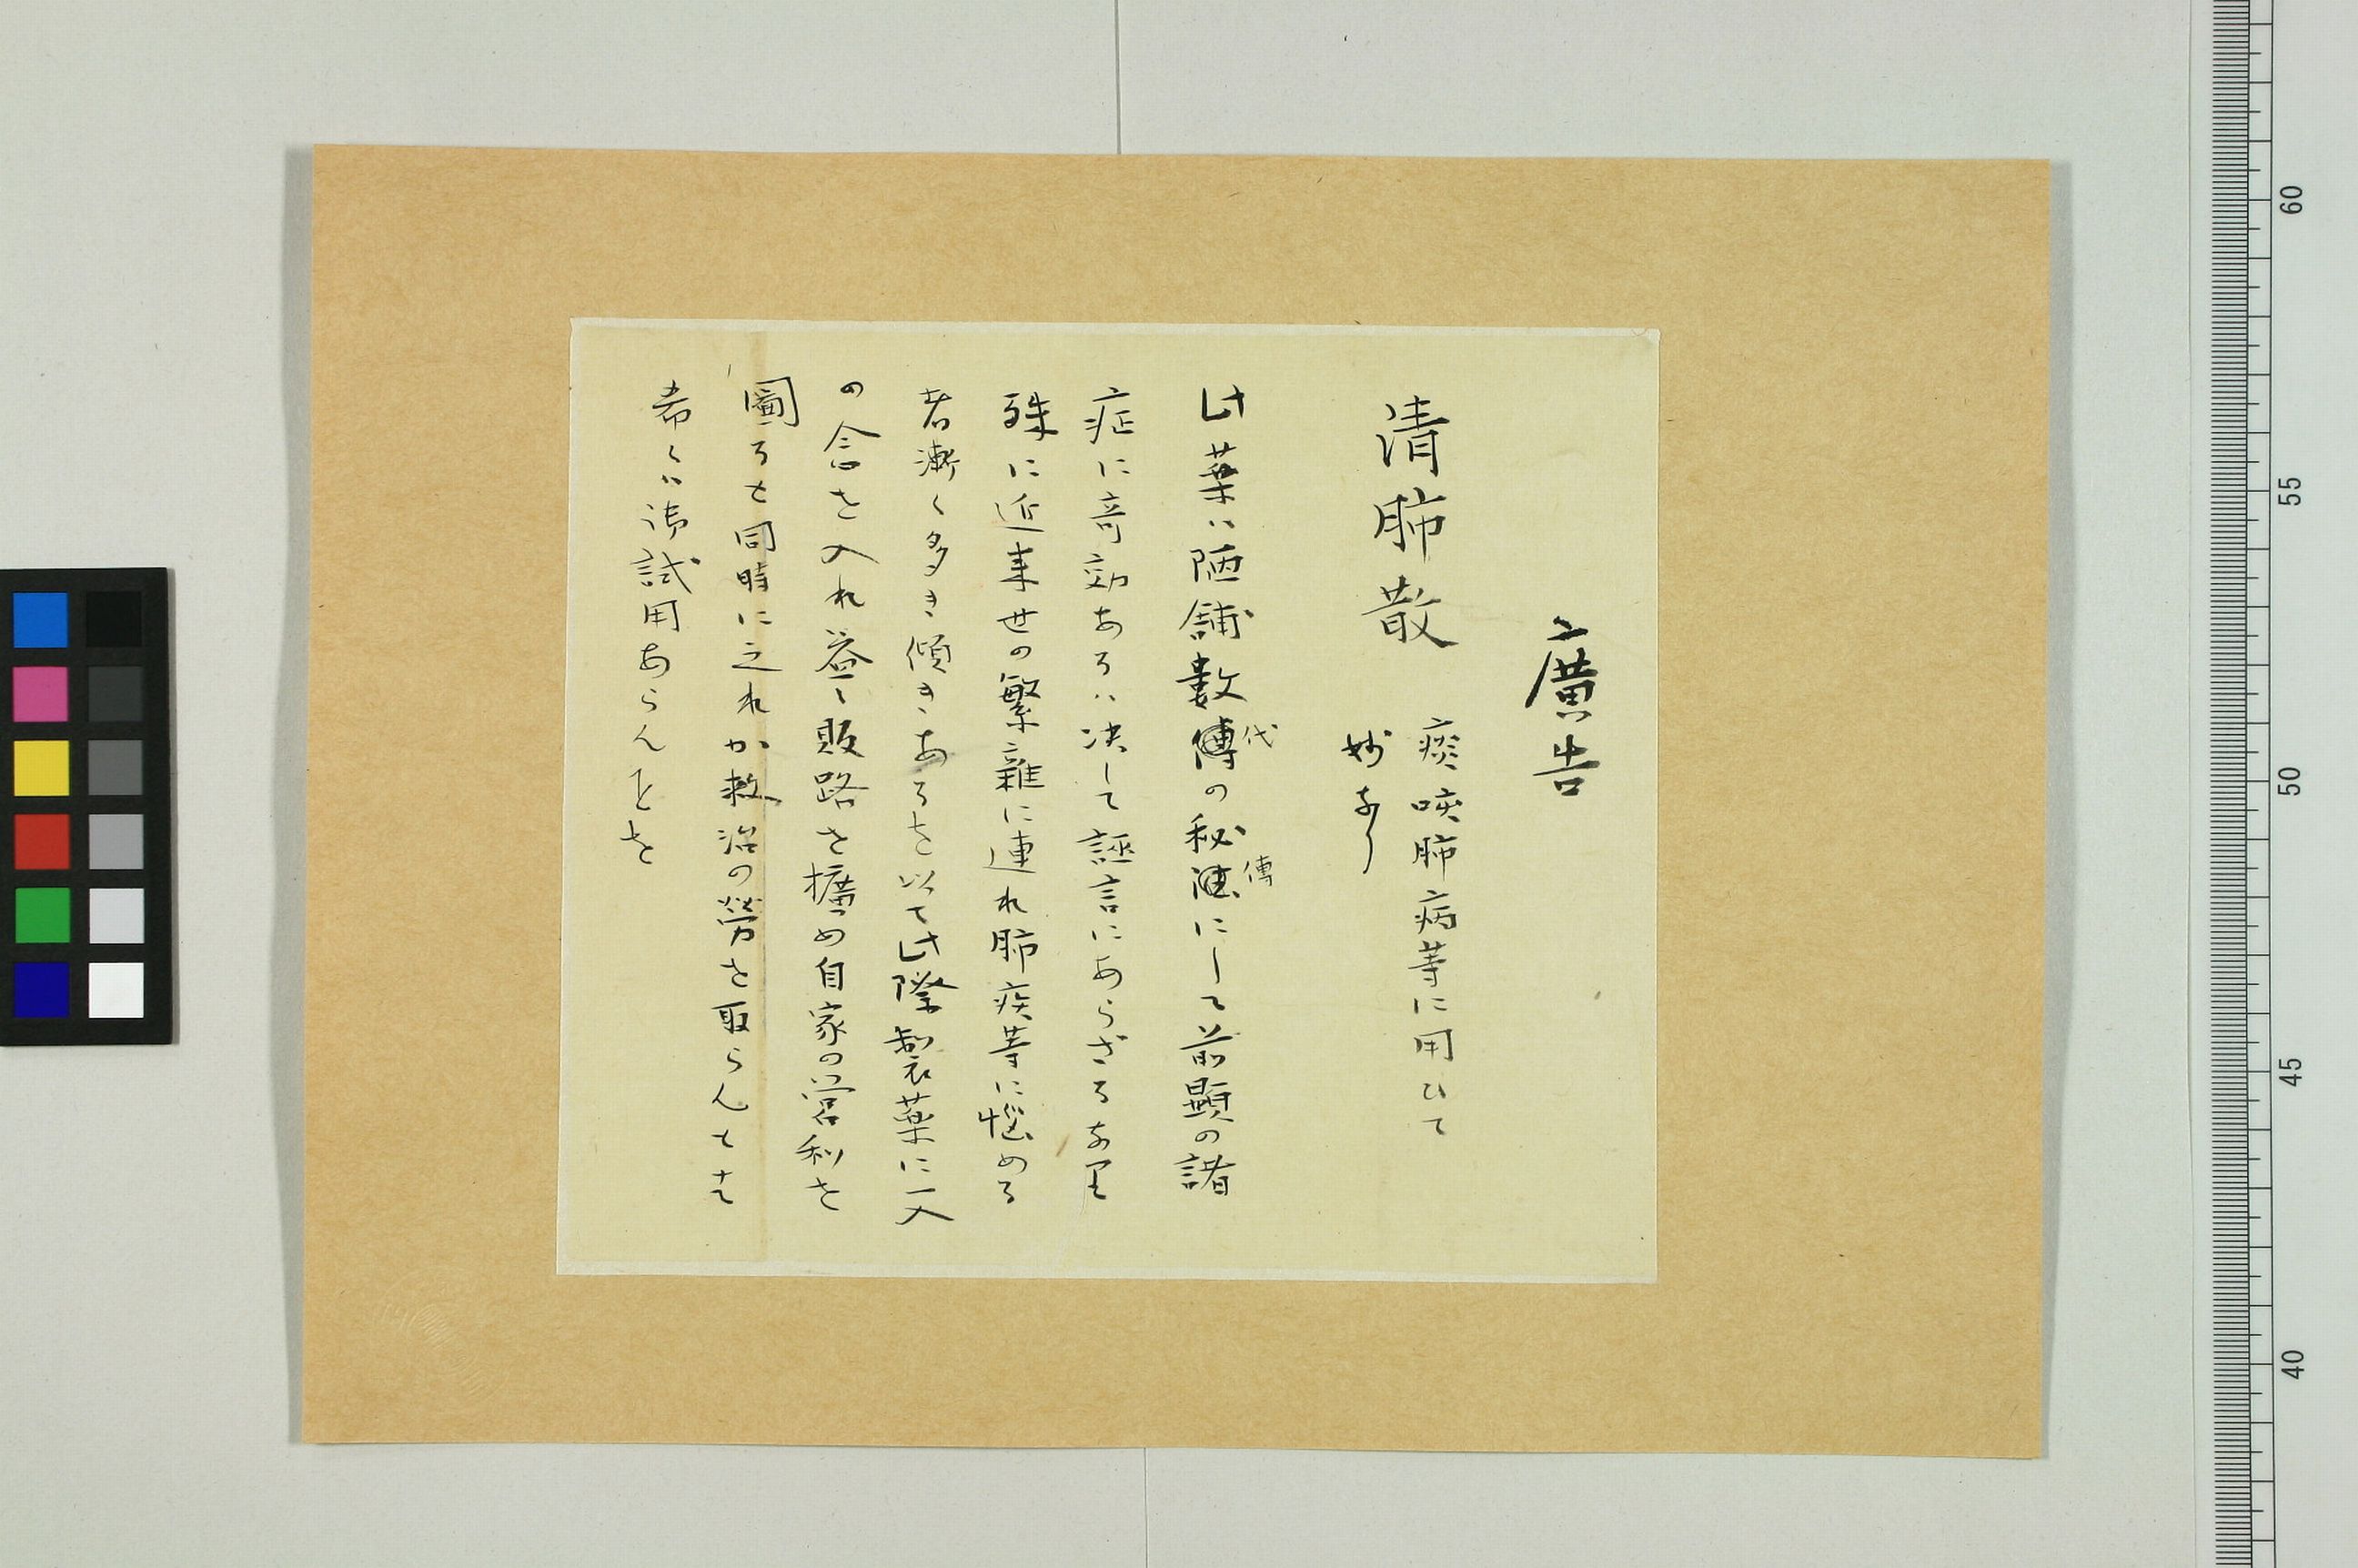 廣告
清肺散
痰咳肺病等に用ひて
妙なり
此藥ハ陋舗數代の秘傳にして前顕の諸
症に竒効あるハ决して誣言にあらざるなり
殊に近来世の繁雜に連れ肺疾等に惱める
者漸く多き傾きあるを以て此際製薬に一入
の念を入れ益〻販路を擴め自家の営利を
圖ると同時に之れか救治の勞を取らんとす
希くハ御試用あらんことを
60
55
50
45
40